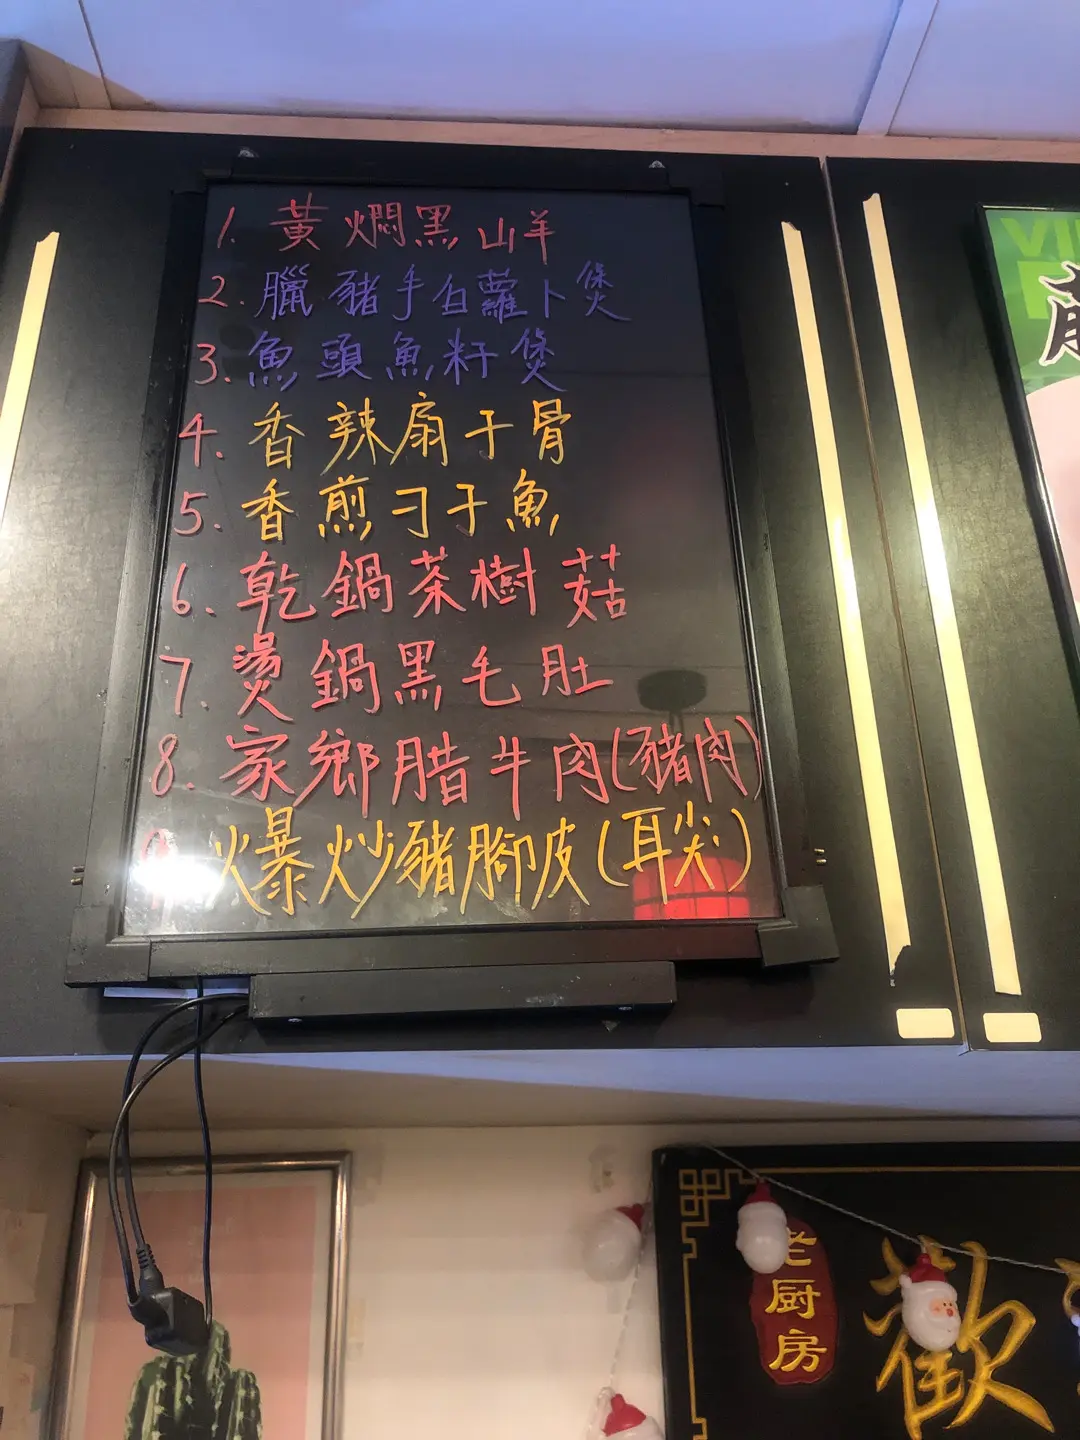 1. 黃燜黑山羊
2. 臘豬手白蘿卜煲
3. 魚頭魚籽煲
4. 香辣扇子骨
5. 香煎刁子魚
6. 乾鍋茶樹菇
7. 燙鍋黑毛肚
8. 家鄉腊牛肉(豬肉)
9. 爆炒豬腳皮(耳尖)
VI
老厨房
歡